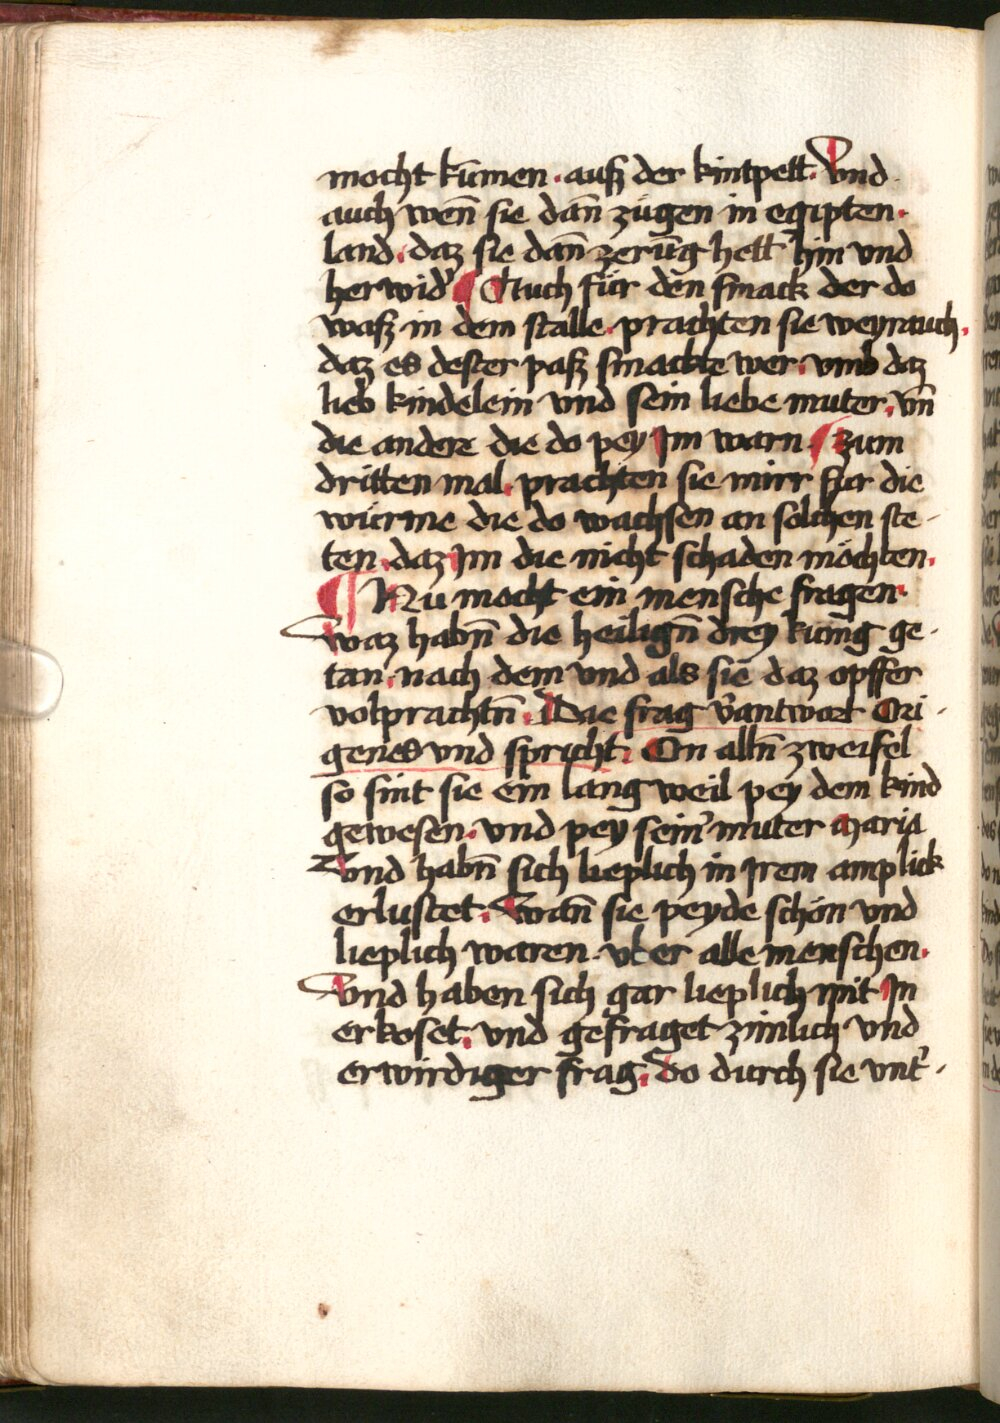 mocht kūmen · auß der kintpett · Vnd
auch wen̄ sie dan̄ zügen in egipten ·
land · daz sie dan̄ zerūg hett hin vnd
herwid' ¶ Auch für den smack der do
waß in dem stalle · prachten sie weyrauch ·
daz es dester paß smackte wer · vmb daz
lieb kindelein vnd sein liebe muter · vn̄
die andere die do pey Im warn · ¶ zum
dritten mal · prachten sie mirr für die
würme die do wachsen an solchen ste-
ten · daz Im die nicht schaden möchten ·
¶ Nu mocht ein mensche fragen ·
waz habn̄ die heilign̄ drey küng ge-
tan · nach dem vnd als sie daz opffer
volprachtn̄ · Dae frag v'antwort Ori-
genes vnd spricht · On alln̄ zweifel
so sint sie ein lang weil pey dem kind
gewesen · vnd pey sein' muter Maria
Vnd habn̄ sich lieplich in Irem amplick
erlustet · wan̄ sie peyde schön vnd
lieplich waren · vber alle menschen ·
Vnd haben sich gar lieplich mit In
erkoset · vnd gefraget zimlich vnd
erwirdiger frag · Do durch sie vnt'-